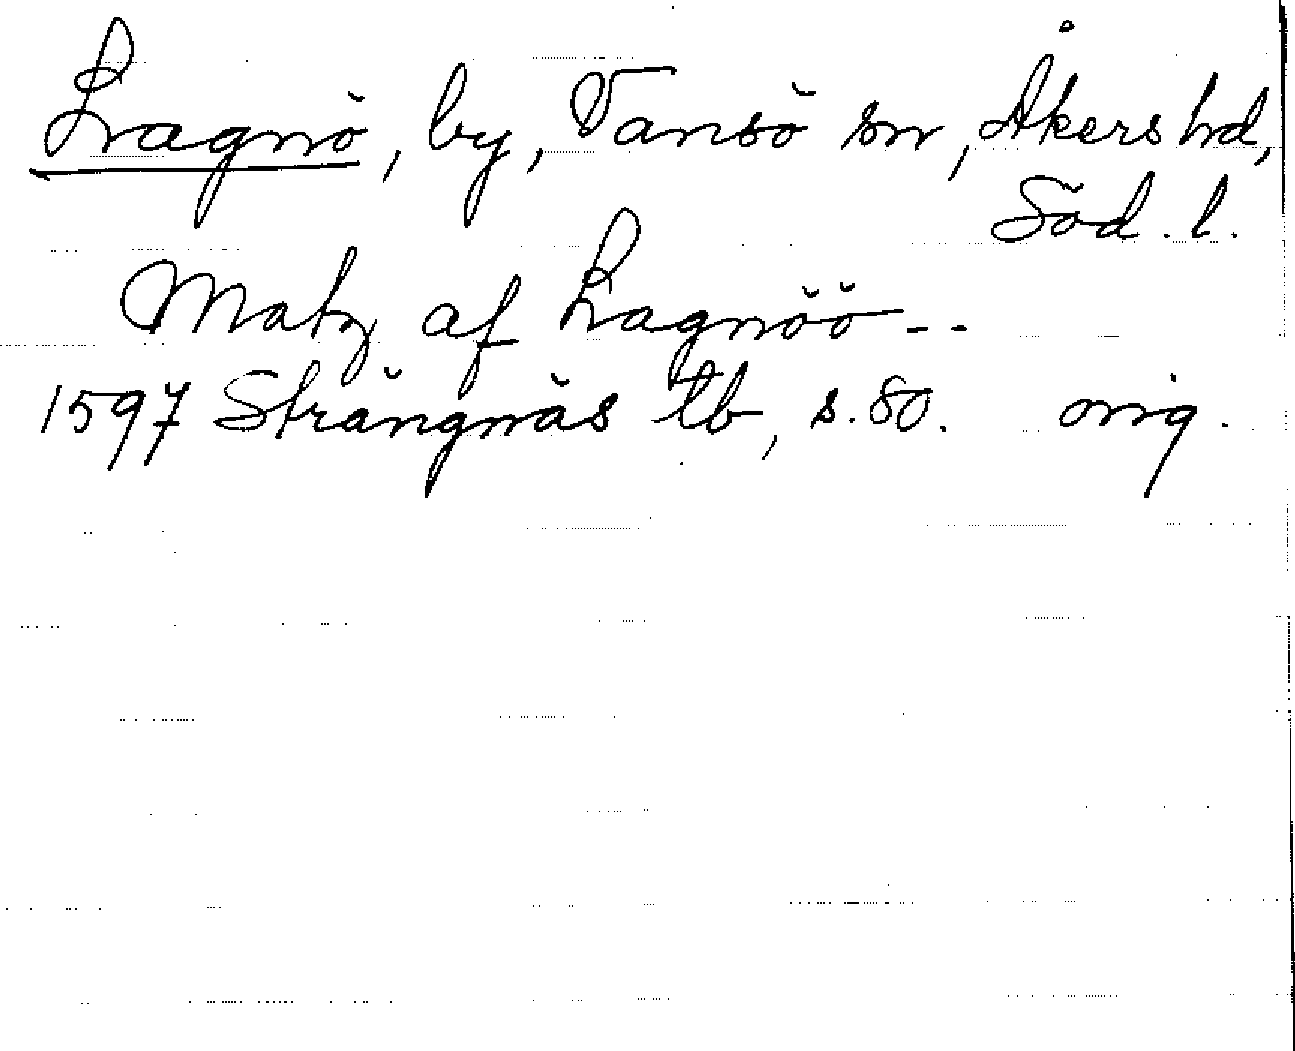 Lagnö, by, Vansö sn, Åkers hd,
Söd. l.
Matz af Lagnöö --
1597 Strängnäs tb, s. 80. orig.